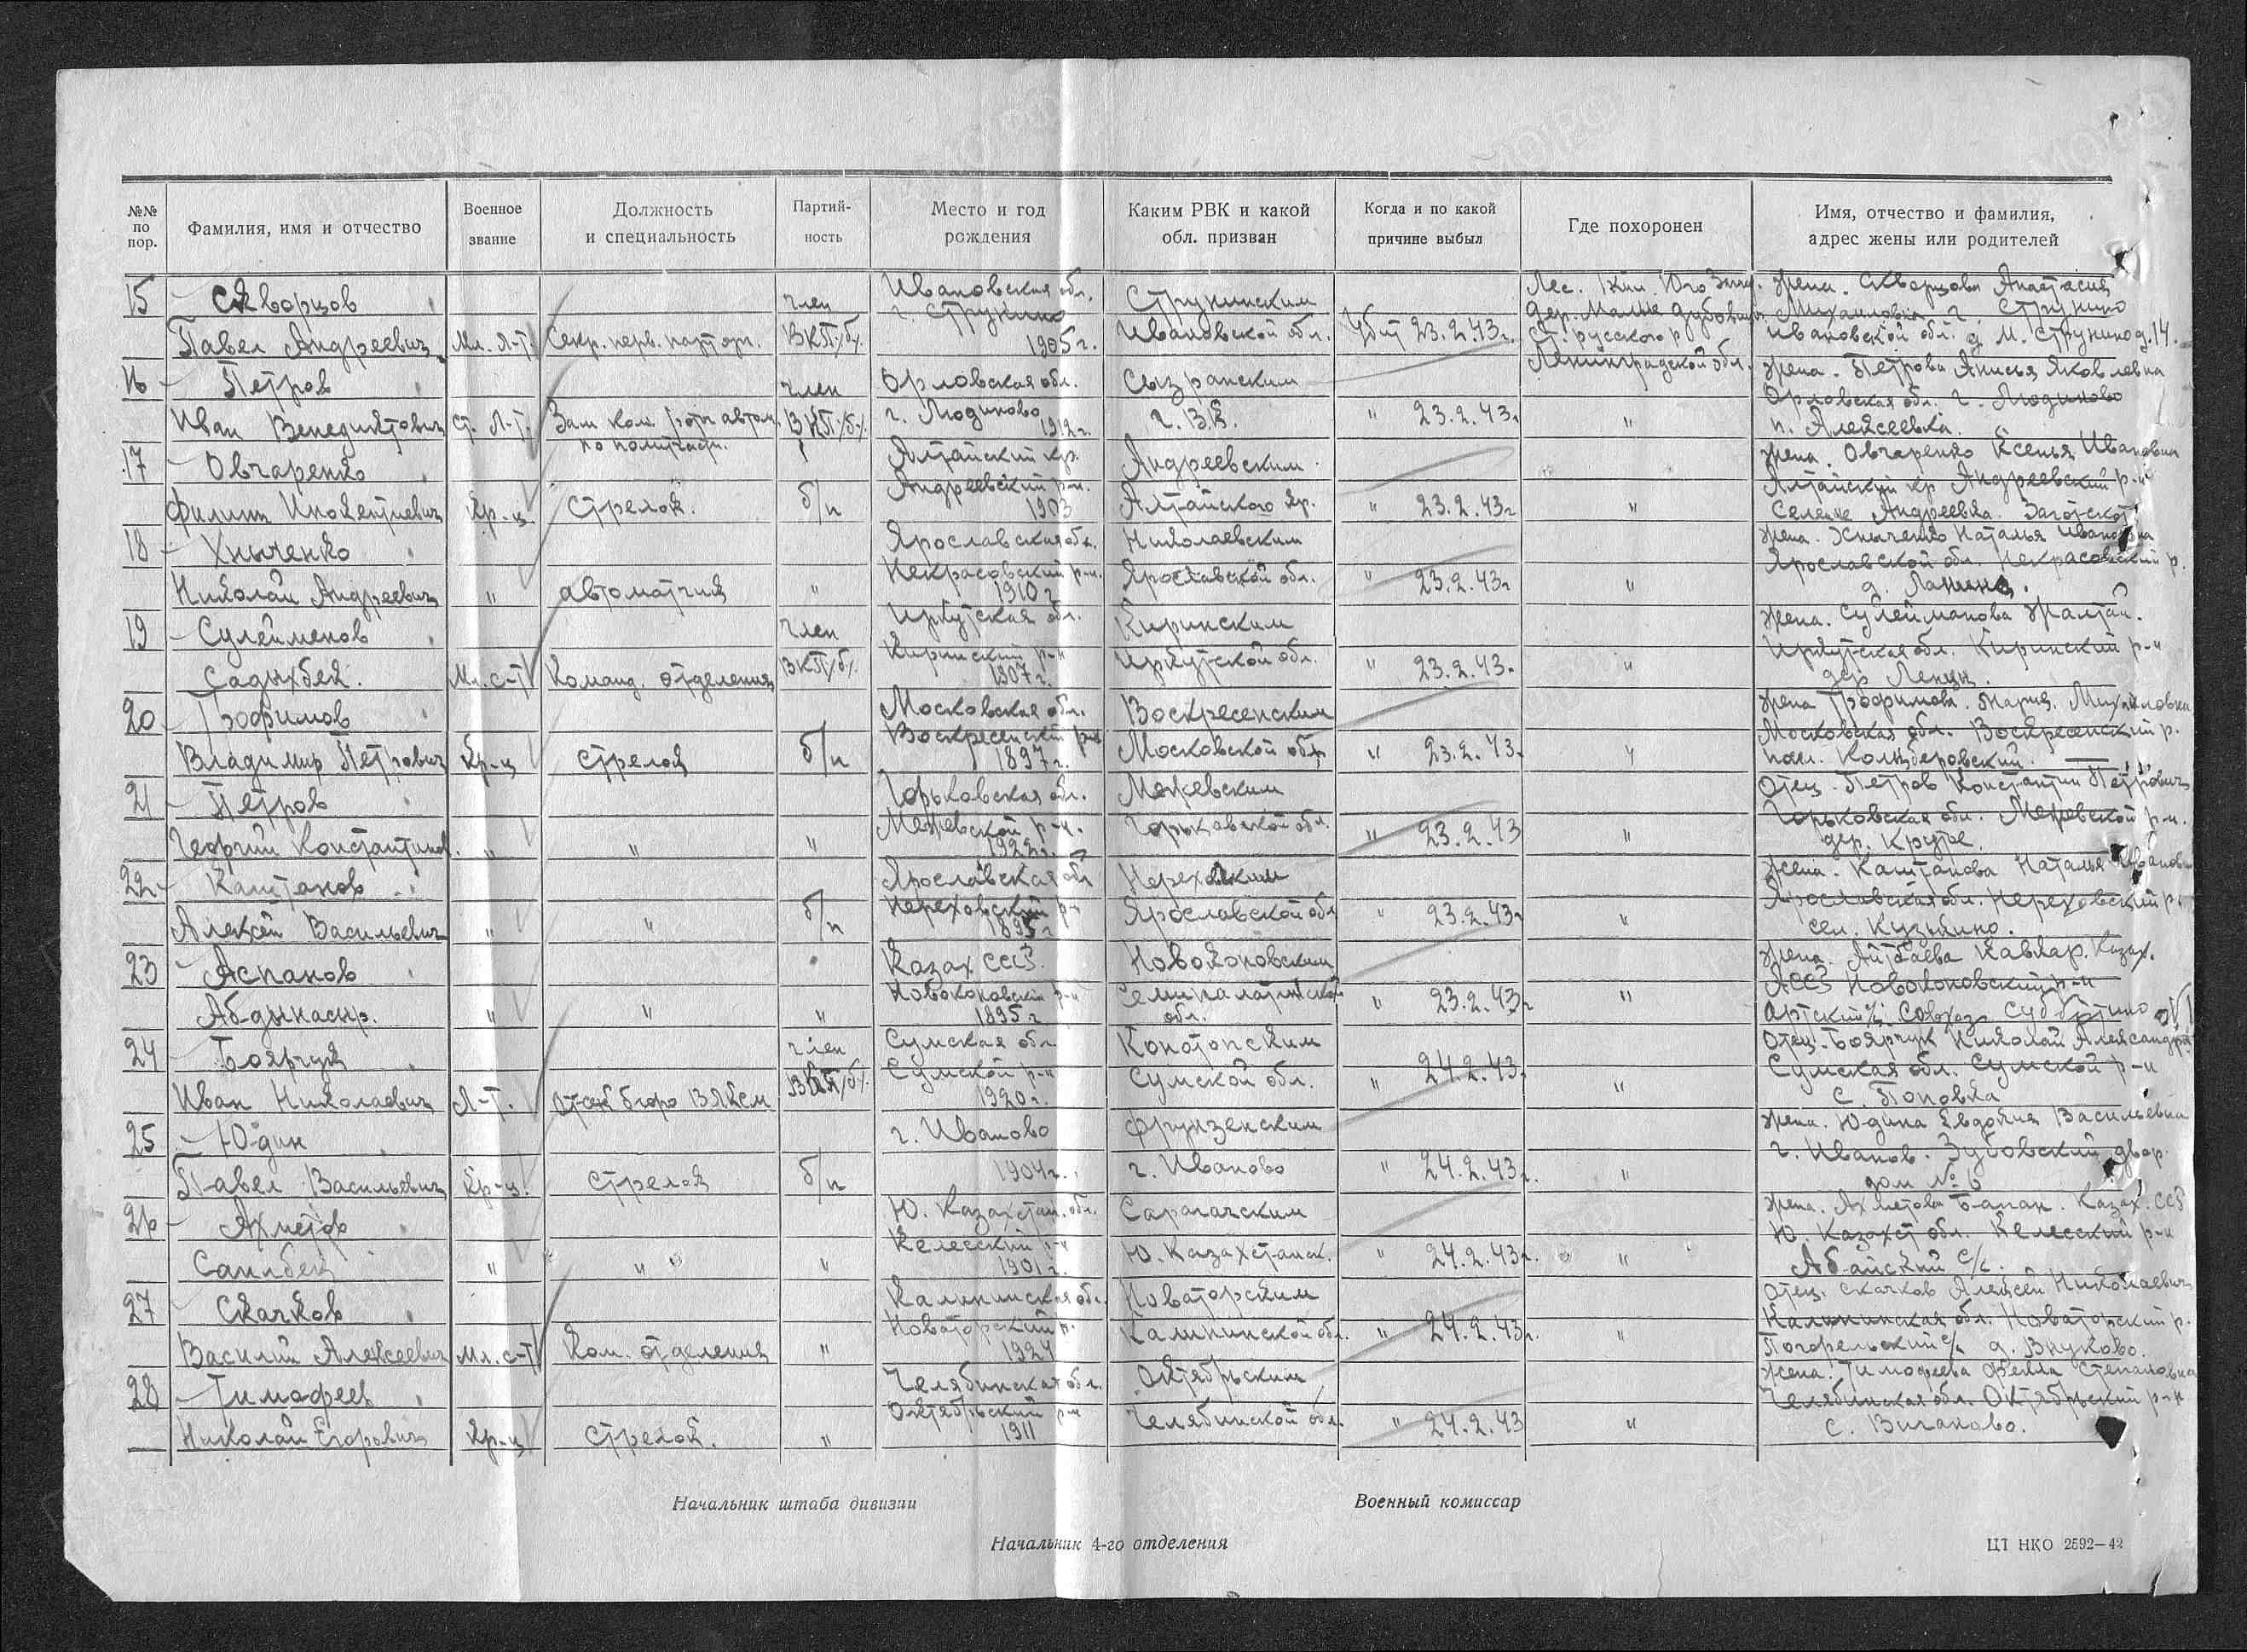 №№ по пор.
Фамилия, имя и отчество
Военное звание
Должность и специальность
Партийность
Место и год рождения
Каким РВК и какой обл. призван
Когда и по какой причине выбыл
Где похоронен
Имя, отчество и фамилия, адрес жены или родителей
15 Скворцов член Ивановская обл. Струнинским Лес. 1 км Юго Зап. Жена. Скворцова Анастасия
Павел Андреевич Мл. л-т. Секр. перв. парт орг. ВКП/б/. г. Струнино 1905 г. Ивановской обл. Убит 23.2.43г. дер. Малые Дубовицы Ст. русского р Ленинградской обл. Михаиловна г. Струнино Ивановской обл. д. 14.
16 Петров член Орловская обл. Сызранским Жена. Петрова Анисья Яковлевна
Иван Венедиктович Ст. л-т. Зам ком роты автом. по политчасти. ВКП/б/. г. Людиново 1912 г. Г.В.К. " 23.2.43г " Орловская обл. г. Людиново п. Алексеевка.
17 Овчаренко Алтайский кр. Андреевским Жена. Овчаренко Ксенья Ивановна
Филипп Инокентиевич Кр-ц. Стрелок. б/п Андреевский р-н. 1903 Алтайского кр. " 23.2.43г " Алтайский кр Андреевский р-н Селение Андреевка.
18 Хныченко Ярославская обл. Николаевским Жена. Хныченко Наталья Ивановна
Николай Андреевич " автоматчик " Некрасовский р-н. 1910 г. Ярославской обл. " 23.2.43г " Ярославской обл. Некрасовский р.
19 Сулейменов член Иркутская обл. Киринским Жена. Сулейманова
Садыхбек. Мл. с-т Команд. отделения ВКП/б/. Киринский р-н 1907 г. Иркутской обл. " 23.2.43. " Иркутская обл. Киринский р-н дер
20 Трофимов Московская обл. Воскресенским Жена Трофимова. Мария. Михаиловна
Владимир Петрович Кр-ц стрелок б/п Воскресенский р-н 1897 г. Московской обл. " 23.2.43. " Московская обл. Воскресенский р.
21 Петров Горьковская обл. Межевским Отец. Петров Константин Петрович
Георгий Константинов. " " " Межевской р-н. 1922 г. Горьковской обл. " 23.2.43 " Горьковская обл. Межевской р-н. дер.
22 Каштанов Ярославская обл Нереховским Жена. Каштанова Наталья Ивановна
Алексей Васильевич " " б/п Нереховский р-н 1895 г Ярославской обл " 23.2.43г " Ярославская обл. Нереховский р. сел. Кузьмино.
23 Аспанов Казах ССР. Новокоповским Жена. Айтбаева Казах.
Абдынасыр. " " " 1895 г Семипалатинской обл. " 23.2.43г " АССР р-н Совхоз
24 Боярчук член Сумская обл. Конотопским Отец. Боярчук Николай Александр.
Иван Николаевич Л-т. бюро ВЛКСМ ВКП/б/. Сумской р-н 1920 г. Сумской обл. " 24.2.43. " Сумская обл. Сумской р-н с. Поповка
25 Юдин г. Иваново Фрунзенским Жена. Юдина Евдокия Васильевна
Павел Васильевич Кр-ц. стрелок б/п 1904 г. г. Иваново " 24.2.43г. " г. Иванов. Зубовский двор. дом № 6
26 Ахметов Ю. Казахстан. обл. Сарагачским Жена. Ахметова Казах. ССР
Саилбек " " " Келесский р-н 1901 г. Ю. Казахстанск. " 24.2.43г. " Ю. Казахст обл. Келесский р-н Абайский с/с.
27 Скачков Калининская обл. Новаторским Отец. Скачков Алексей Николаевич
Василий Алексеевич Мл. с-т Ком. отделения " Новаторский р. 1924 Калининской обл. " 24.2.43г. " Калининская обл. Новаторский р. Погорельский с/с д. Внуково.
28 Тимофеев Челябинская обл. Октябрьским Жена. Тимофеева Фекла Степановна
Николай Егорович Кр-ц стрелок. " Октябрьский р-н 1911 Челябинской обл. " 24.2.43 " Челябинская обл. Октябрьский р-н с.
Начальник штаба дивизии
Военный комиссар
Начальник 4-го отделения
ЦТ НКО 2592—42